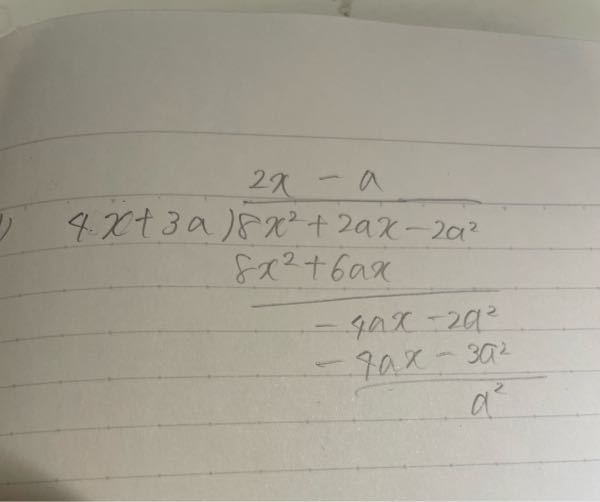 2x - a
4x+3a)8x²+2ax-2a²
8x²+6ax
-4ax-2a²
-4ax-3a²
a²